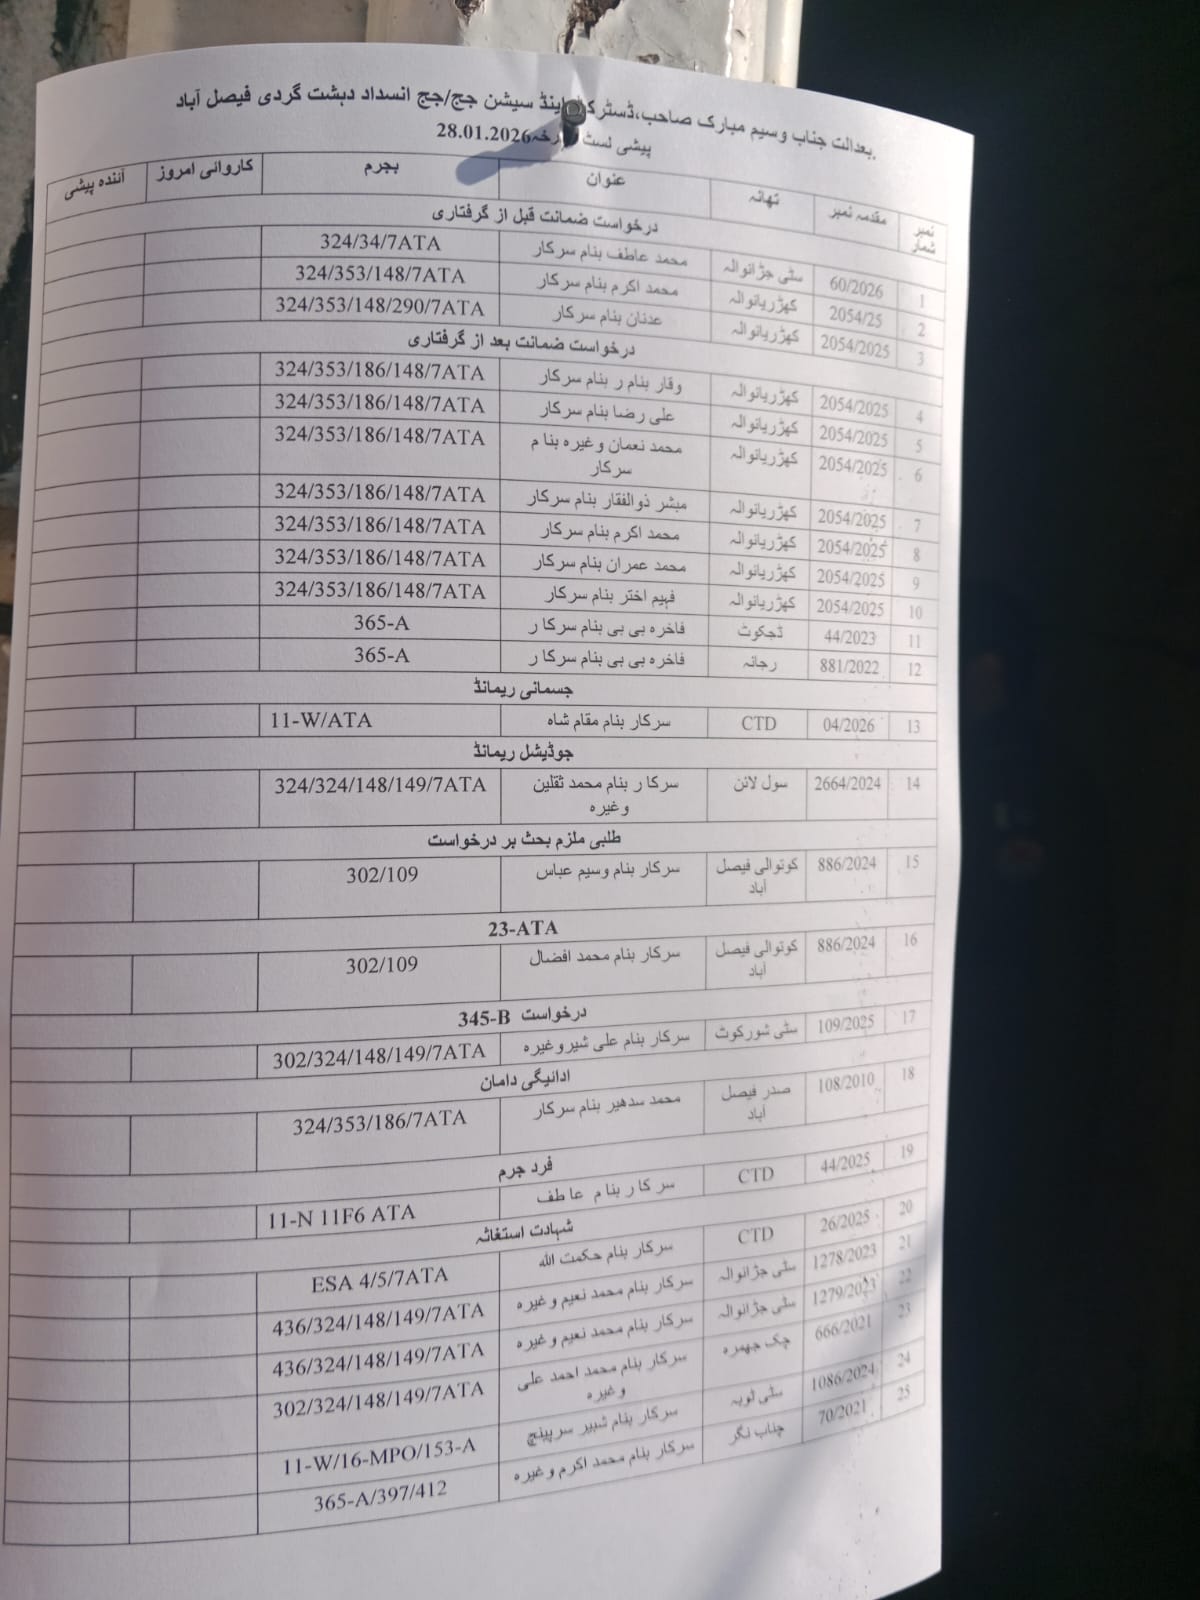 بعدالت جناب وسیم مبارک صاحب،ڈسٹرکٹ اینڈ سیشن جج/جج انسداد دہشت گردی فیصل آباد.
پیشی لسٹ مورخہ28.01.2026
نمبر شمار مقدمہ نمبر تھانہ عنوان بجرم کاروائی امروز آئندہ پیشی
درخواست ضمانت قبل از گرفتاری
1 60/2026 سٹی جڑانوالہ محمد عاطف بنام سرکار 324/34/7ATA
2 2054/25 کھڑریانوالہ محمد اکرم بنام سرکار 324/353/148/7ATA
3 2054/2025 کھڑریانوالہ عدنان بنام سرکار 324/353/148/290/7ATA
درخواست ضمانت بعد از گرفتاری
4 2054/2025 کھڑریانوالہ وقار بنام ر بنام سرکار 324/353/186/148/7ATA
5 2054/2025 کھڑریانوالہ علی رضا بنام سرکار 324/353/186/148/7ATA
6 2054/2025 کھڑریانوالہ محمد نعمان وغیرہ بنا م 324/353/186/148/7ATA
سرکار
7 2054/2025 کھڑریانوالہ مبشر ذوالفقار بنام سرکار 324/353/186/148/7ATA
8 2054/2025 کھڑریانوالہ محمد اکرم بنام سرکار 324/353/186/148/7ATA
9 2054/2025 کھڑریانوالہ محمد عمران بنام سرکار 324/353/186/148/7ATA
10 2054/2025 کھڑریانوالہ فہیم اختر بنام سرکار 324/353/186/148/7ATA
11 44/2023 ڈجکوٹ فاخرہ بی بی بنام سرکا ر 365-A
12 881/2022 رجانہ فاخرہ بی بی بنام سرکا ر 365-A
جسمانی ریمانڈ
13 04/2026 CTD سرکار بنام مقام شاہ 11-W/ATA
جوڈیشل ریمانڈ
14 2664/2024 سول لائن سرکا ر بنام محمد ثقلین 324/324/148/149/7ATA
وغیرہ
طلبی ملزم بحث بر درخواست
15 886/2024 کوتوالی فیصل سرکار بنام وسیم عباس 302/109
آباد
23-ATA
16 886/2024 کوتوالی فیصل سرکار بنام محمد افضال 302/109
آباد
درخواست 345-B
17 109/2025 سٹی شورکوٹ سرکار بنام علی شیروغیرہ 302/324/148/149/7ATA
ادائیگی دامان
18 108/2010 صدر فیصل محمد سدھیر بنام سرکار 324/353/186/7ATA
آباد
فرد جرم
19 44/2025 CTD سر کا ر بنا م عا طف 11-N 11F6 ATA
شہادت استغاثہ
20 26/2025 CTD سرکار بنام حکمت اللہ ESA 4/5/7ATA
21 1278/2023 سٹی جڑانوالہ سرکار بنام محمد نعیم وغیرہ 436/324/148/149/7ATA
22 1279/2023 سٹی جڑانوالہ سرکار بنام محمد نعیم وغیرہ 436/324/148/149/7ATA
23 666/2021 چک جھمرہ سرکار بنام محمد احمد علی 302/324/148/149/7ATA
وغیرہ
24 1086/2024 سٹی ٹوبہ سرکار بنام شبیر سرپینچ 11-W/16-MPO/153-A
25 70/2021 چناب نگر سرکار بنام محمد اکرم وغیرہ 365-A/397/412